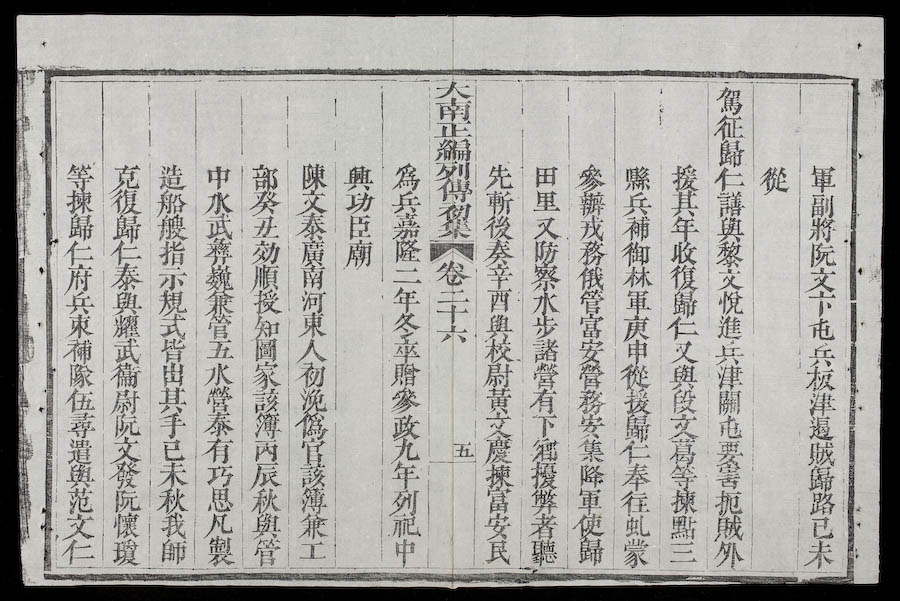 軍副將阮文卞屯兵板津遏賊歸路己未
從
駕征歸仁譜與黎文悅進兵津關屯要害扼賊外
援其年收復歸仁又與段文葛等揀點三
縣兵補御林軍庚申從援歸仁奉往虬蒙
參辦戎務俄管富安營務安集降軍使歸
田里又防察水步諸營有下鄉擾弊者聽
先斬後奏辛酉與校尉黃文慶揀富安民
大南正編列傳初集 卷二十六 五
爲兵嘉隆二年冬卒贈參政九年列祀中
興功臣廟
陳文泰廣南河東人初浼僞官該簿兼工
部癸丑効順授知圖家該簿丙辰秋與管
中水武彝巍兼管五水營泰有巧思凡製
造船艘指示規式皆出其手己未秋我師
克復歸仁泰與耀武衞尉阮文發阮懷瓊
等揀歸仁府兵束補隊伍尋遣與范文仁